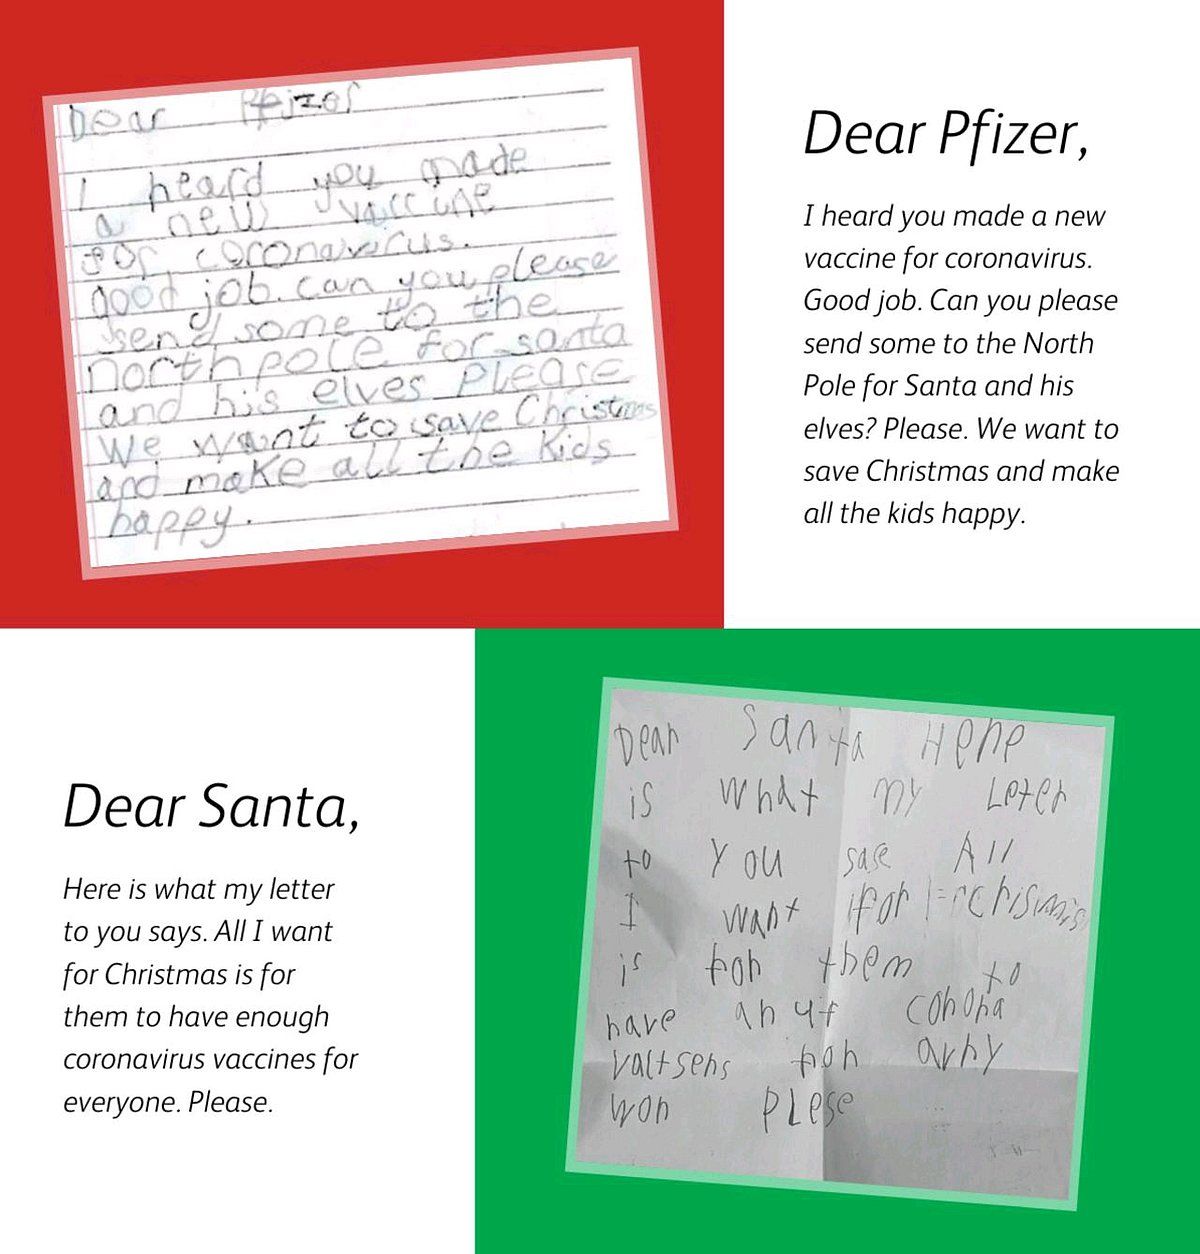 Dear Pfizer
I heard you made
a new vaccine
for coronavirus.
good job. can you please
send some to the
north pole for santa
and his elves please
We want to save Christmas
and make all the kids
happy.
Dear Pfizer,
I heard you made a new
vaccine for coronavirus.
Good job. Can you please
send some to the North
Pole for Santa and his
elves? Please. We want to
save Christmas and make
all the kids happy.
Dear Santa,
Here is what my letter
to you says. All I want
for Christmas is for
them to have enough
coronavirus vaccines for
everyone. Please.
Dear Santa Here
is what my Leter
to you sase All
I want
is for them to
have an uf corona
valtsens for
won PLese